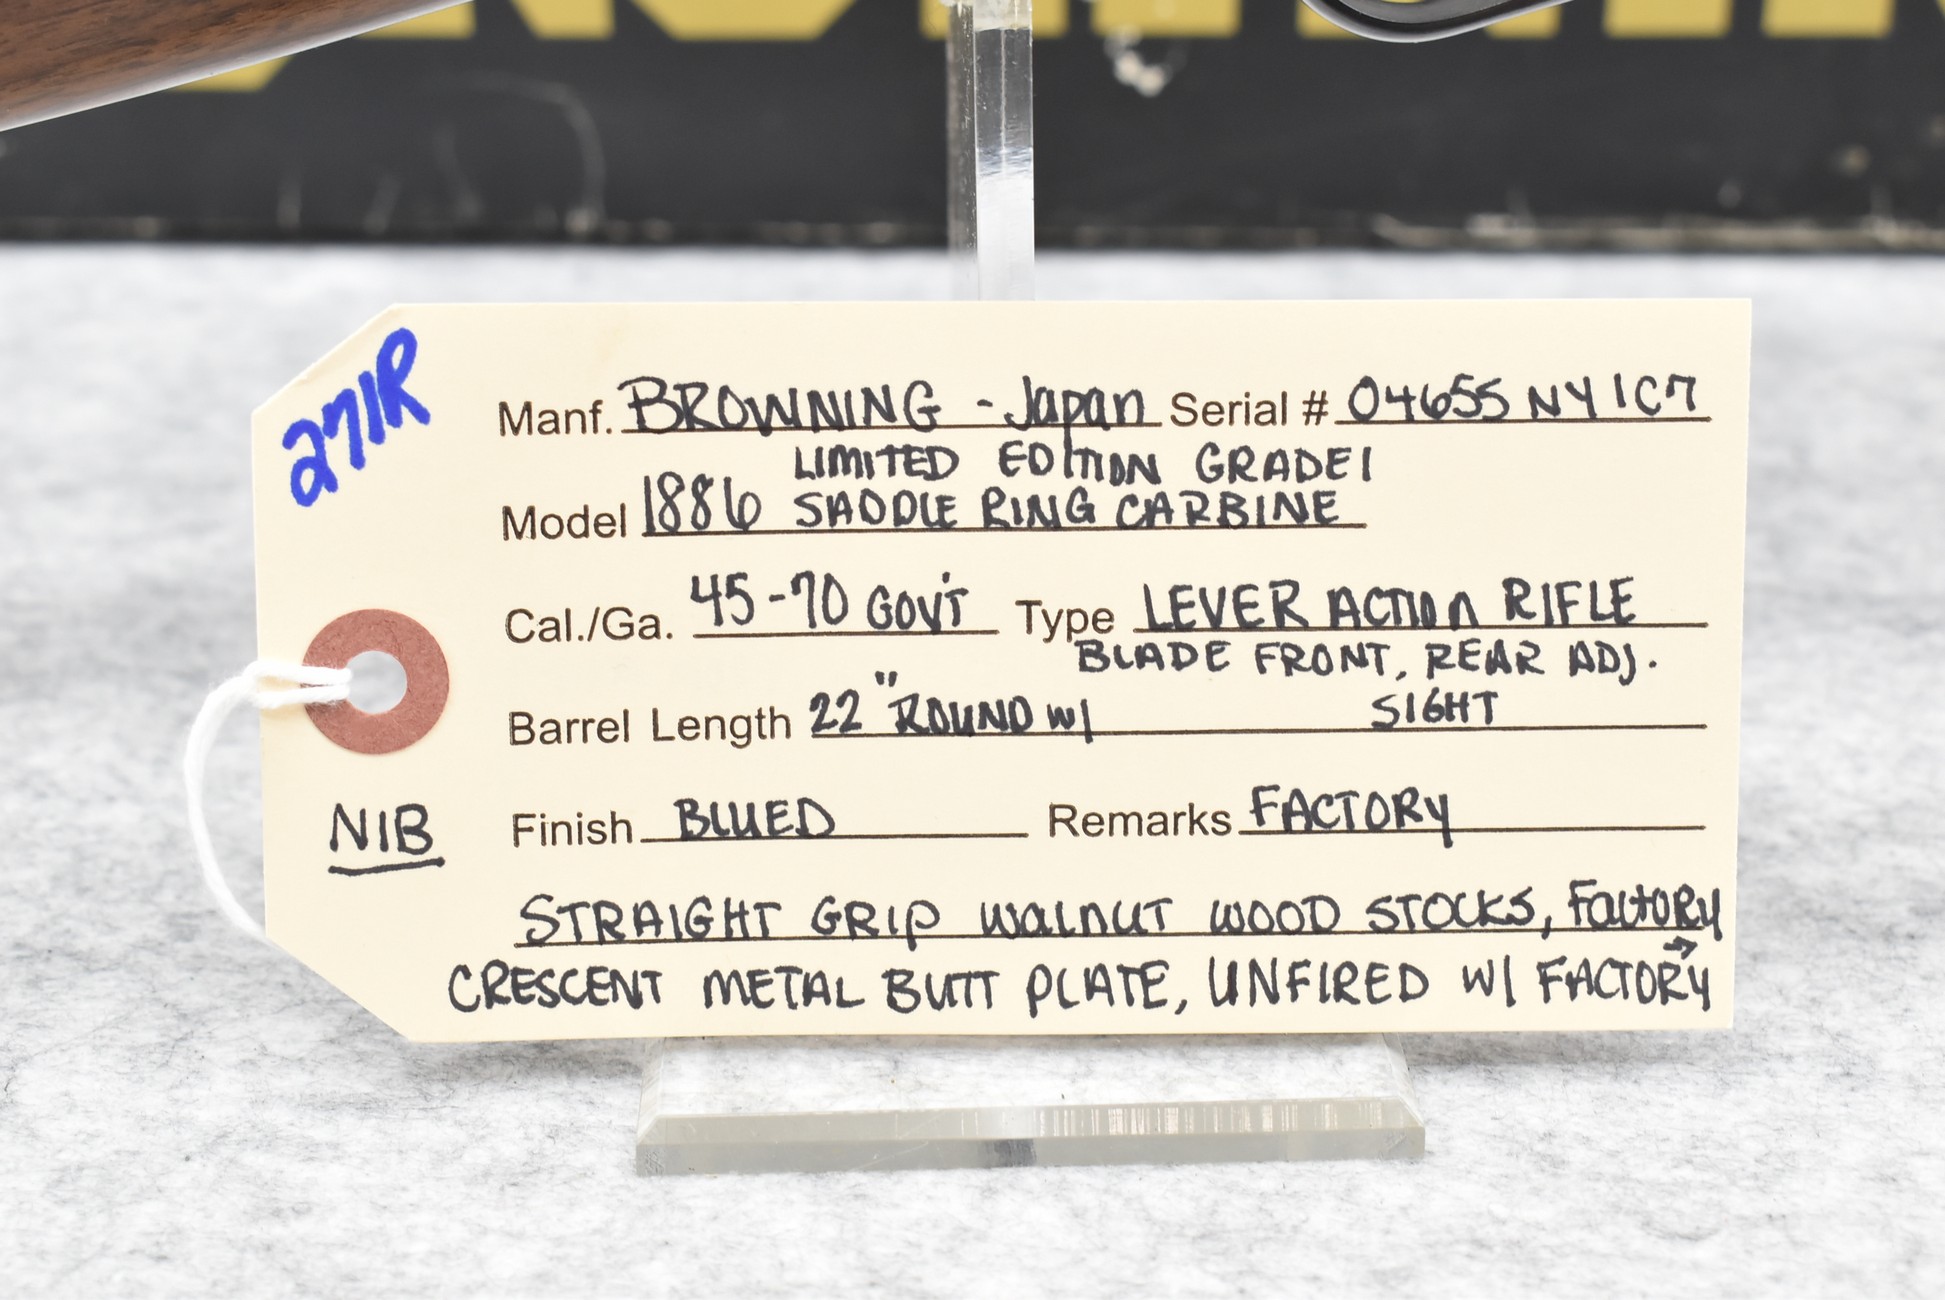 271R
Manf. BROWNING - Japan Serial # 04655 NY 1C7
LIMITED EDITION GRADE 1
Model 1886 SADDLE RING CARBINE
Cal./Ga. 45-70 GOV'T Type LEVER ACTION RIFLE
BLADE FRONT, REAR ADJ.
Barrel Length 22" ROUND W/ SIGHT
NIB Finish BLUED Remarks FACTORY
STRAIGHT GRIP WALNUT WOOD STOCKS, FACTORY
CRESCENT METAL BUTT PLATE, UNFIRED W/ FACTORY →